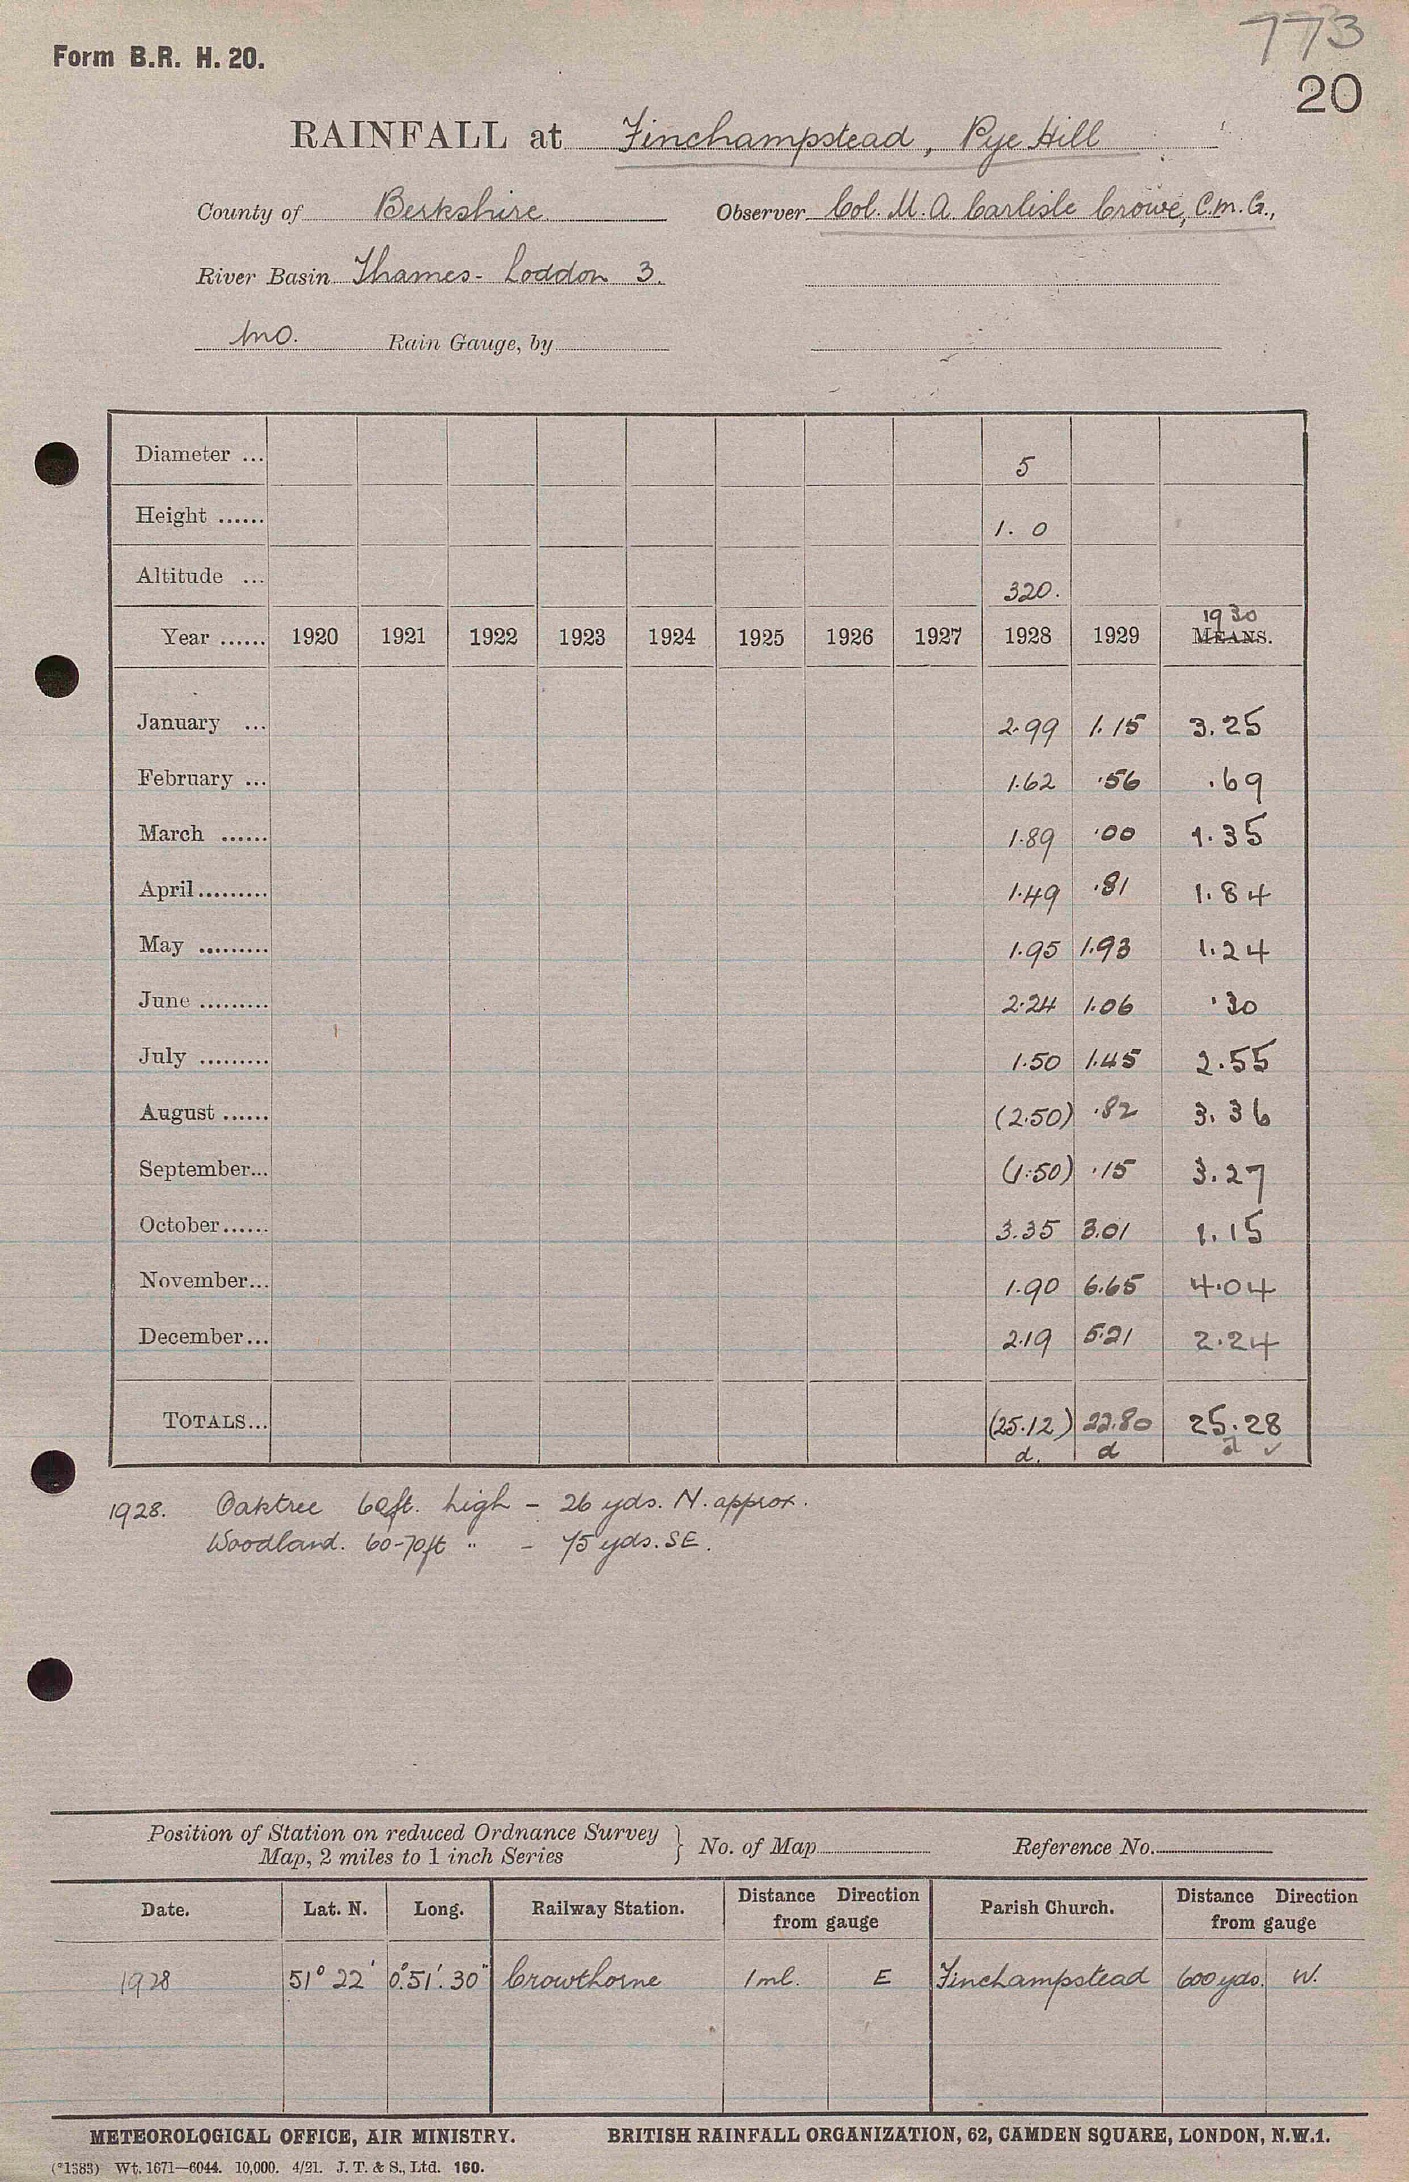 773
Form B.R. H. 20.
20
RAINFALL at Finchampstead, Pye Hill
County of Berkshire Observer Col. M. A. Carlisle Crowe, C.M.G.,
River Basin Thames - Loddon 3.
MO. Rain Gauge, by
Diameter ... 5
Height ...... 1. 0
Altitude ... 320.
1930
Year ...... 1920 1921 1922 1923 1924 1925 1926 1927 1928 1929 MEANS.
January ... 2.99 1.15 3.25
February ... 1.62 .56 .69
March ...... 1.89 .00 1.35
April......... 1.49 .81 1.84
May ......... 1.95 1.93 1.24
June ......... 2.24 1.06 .30
July ......... 1.50 1.45 2.55
August ...... (2.50) .82 3.36
September... (1.50) .15 3.27
October...... 3.35 3.01 1.15
November... 1.90 6.65 4.04
December... 2.19 5.21 2.24
TOTALS... (25.12) 22.80 25.28
d. d d ✓
1928. Oaktree 60ft. high - 26 yds. N. approx.
Woodland. 60-70ft " - 75 yds. SE.
Position of Station on reduced Ordnance Survey
Map, 2 miles to 1 inch Series } No. of Map Reference No.
Date. Lat. N. Long. Railway Station. Distance Direction from gauge Parish Church. Distance Direction from gauge
1928 51° 22' 0°.51'. 30" Crowthorne 1 ml. E Finchampstead 600 yds. W.
METEOROLOGICAL OFFICE, AIR MINISTRY. BRITISH RAINFALL ORGANIZATION, 62, CAMDEN SQUARE, LONDON, N.W.1.
(*1383) Wt. 1671—6044. 10,000. 4/21. J. T. & S., Ltd. 160.